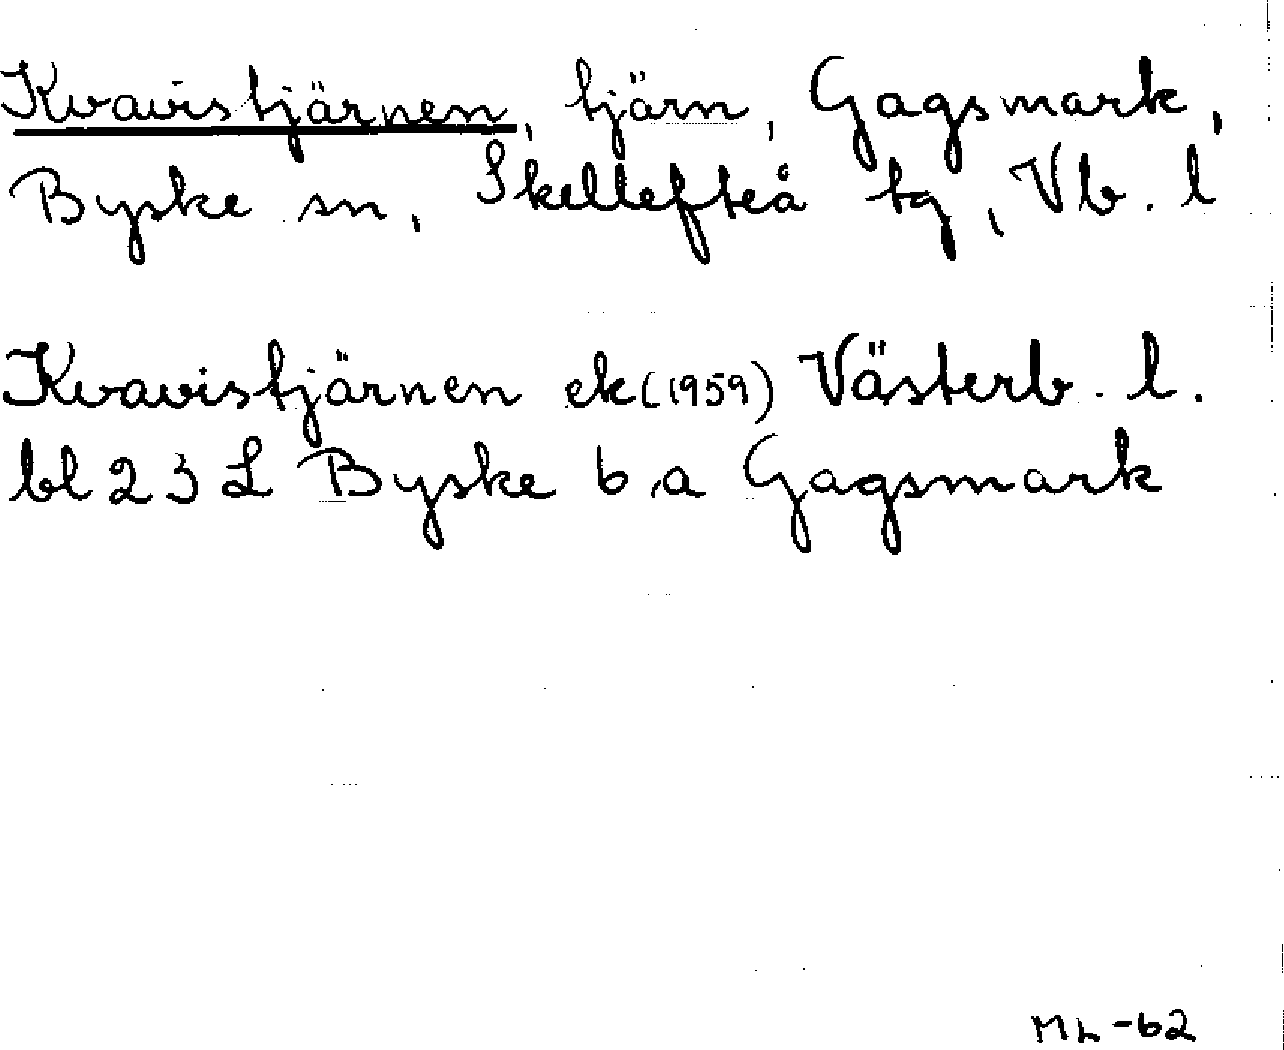 Kvavistjärnen, tjärn, Gagsmark,
Byske sn, Skellefteå tg, Vb. l
Kvavistjärnen ek (1959) Västerb. l.
bl 23 L Byske b,a Gagsmark
ML-62